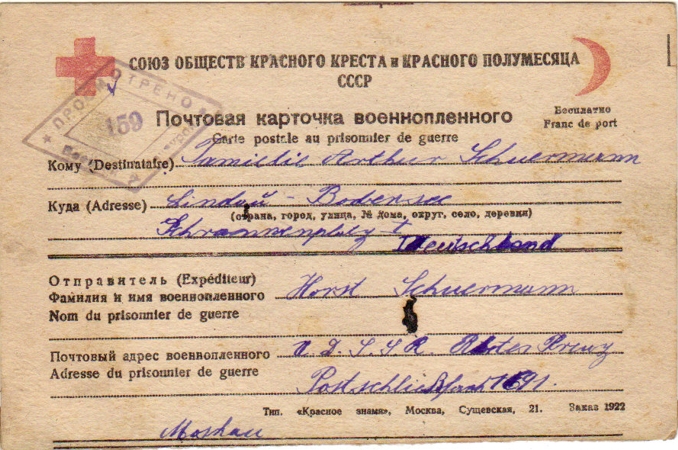 СОЮЗ ОБЩЕСТВ КРАСНОГО КРЕСТА и КРАСНОГО ПОЛУМЕСЯЦА
СССР
ПРОСМОТРЕНО
159
Почтовая карточка военнопленного
Carte postale au prisonnier de guerre
Бесплатно
Franc de port
Кому (Destinataire) Familie Arthur Schuermann
Куда (Adresse) Lindau - Bodensee
(страна, город, улица, № дома, округ, село, деревня)
Schrannenplatz 1 Deutschland
Отправитель (Expéditeur)
Фамилия и имя военнопленного Horst Schuermann
Nom du prisonnier de guerre
Почтовый адрес военнопленного U.D.S.S.R Rotes Kreuz
Adresse du prisonnier de guerre Postschließfach
Тип. «Красное знамя», Москва, Сущевская, 21. Заказ 1922
Moskau